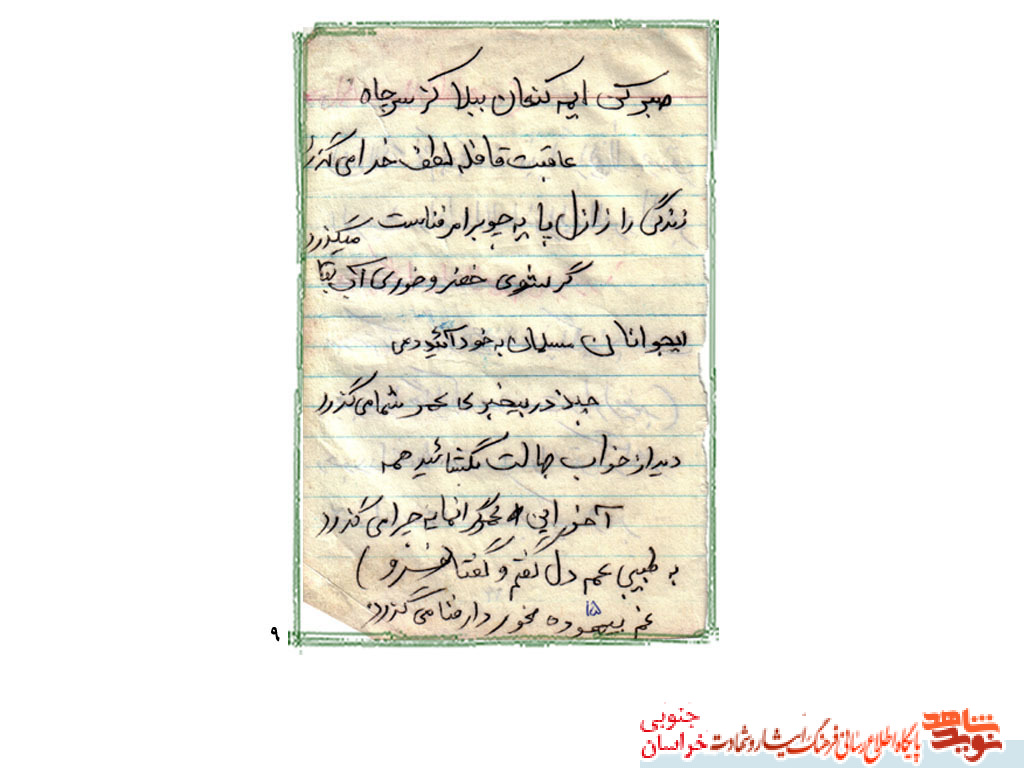 صبر کن ایمه کنعان ببلا کز سر چاه
عاقبت قافله لطف خدا می گذرد
زندگی را ز ازل پایه چو بر امر فناست
میگذرد
گر شوی خضر و خوری آب بقا
ایجوانان مسلمان به خود آئید دمی
چند در بیخبری عمر شما می گذرد
دیده از خواب جهالت بگشائید همه
آخر این عمر گرانمایه چرا می گذرد
به طبیبی غم دل گفتم و گفتا
غم بیهوده مخور دار فنا می گذرد.
۱۵
۹
نوید شاهد
پایگاه اطلاع رسانی فرهنگ ایثار و شهادت
خراسان جنوبی